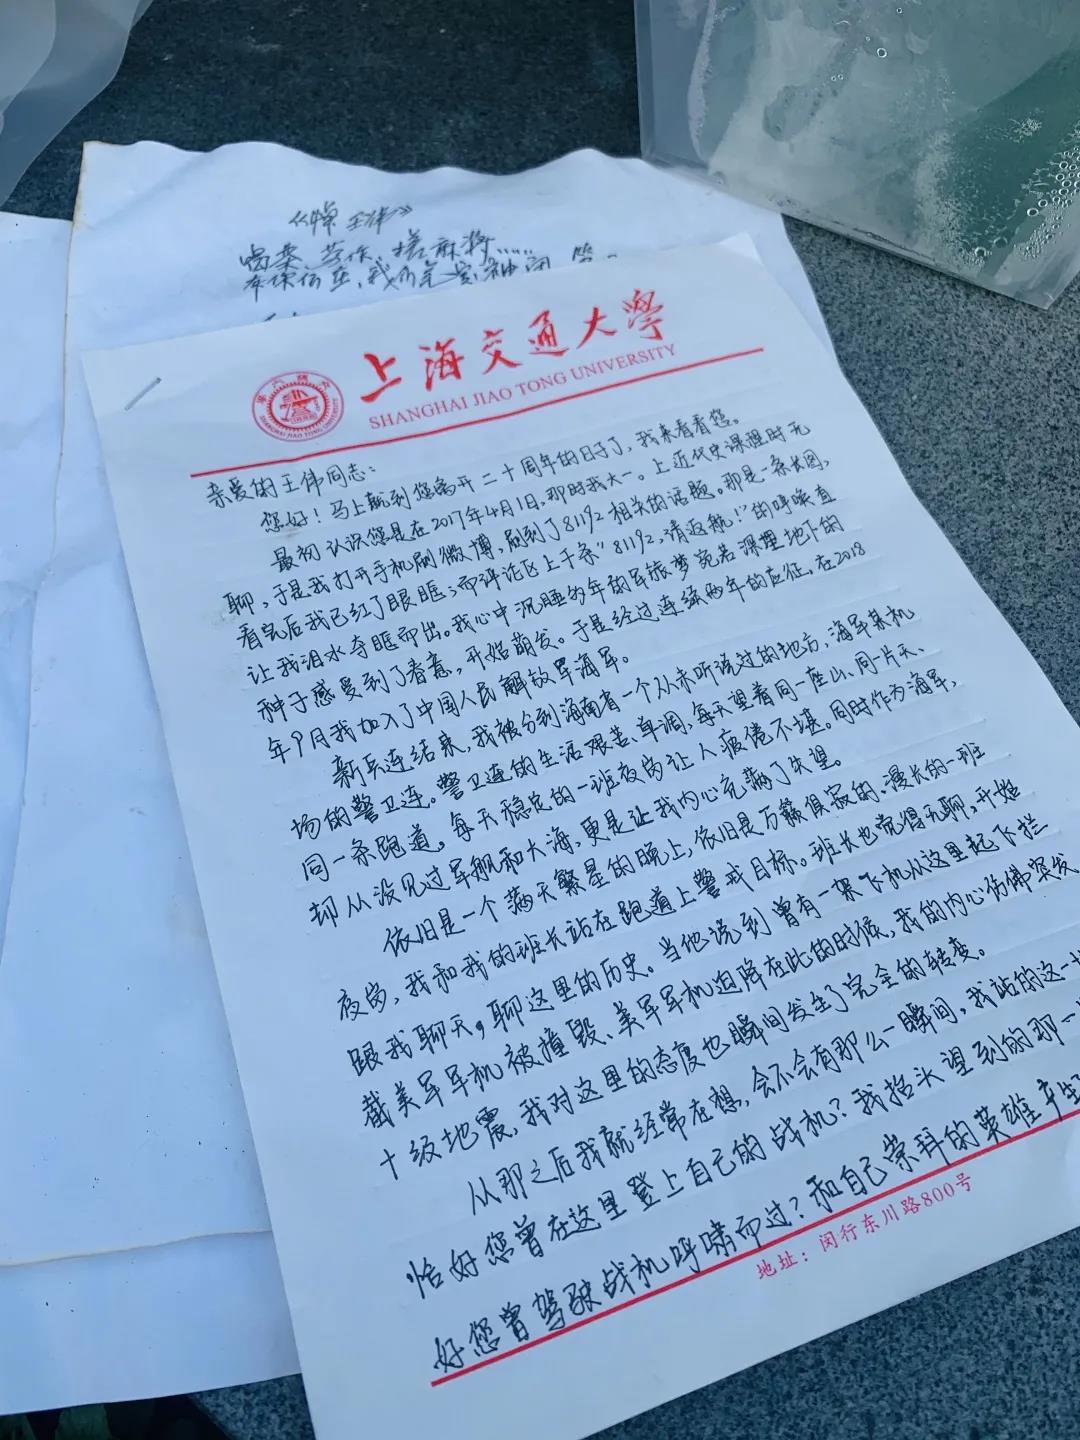 《悼王伟》
上海交通大学
SHANGHAI JIAO TONG UNIVERSITY
亲爱的王伟同志：
您好！马上就到您离开二十周年的日子了，我来看看您。
最初认识您是在2017年4月1日，那时我大一。上近代史课程时无
聊，于是我打开手机刷微博，刷到了81192相关的话题。那是一条长图，
看完后我已红了眼眶；而评论区上千条“81192，请返航！”的呼唤直
让我泪水夺眶而出。我心中沉睡多年的军旅梦宛若深埋地下的
种子感受到了春意，开始萌发。于是经过连续两年的应征，在2018
年9月我加入了中国人民解放军海军。
新兵连结束，我被分到海南省一个从未听说过的地方，海军某机
场的警卫连。警卫连的生活艰苦、单调，每天望着同一座山、同一片天、
同一条跑道。每天稳定的一班夜岗让人疲倦不堪。同时作为海军，
却从没见过军舰和大海，更是让我内心充满了失望。
依旧是一个满天繁星的晚上，依旧是万籁俱寂的、漫长的一班
夜岗，我和我的班长站在跑道上警戒目标。班长也觉得无聊，开始
跟我聊天，聊这里的历史。当他说到曾有一架飞机从这里起飞拦
截美军军机被撞毁、美军军机迫降在此的时候，我的内心仿佛突发
十级地震，我对这里的态度也瞬间发生了完全的转变。
从那之后我就经常在想，会不会有那么一瞬间，我站的这一
恰好您曾在这里登上自己的战机？我抬头望到的那一
好您曾驾驶战机呼啸而过？和自己崇拜的英雄
地址：闵行东川路800号